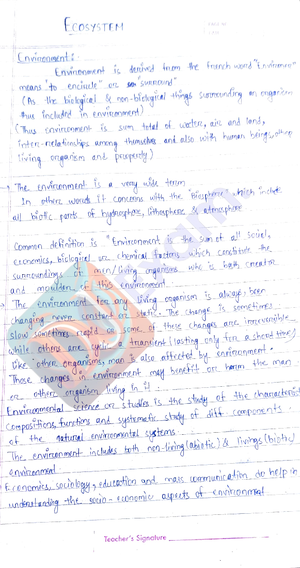 ECOSYSTEM
Environment:
Environment is derived from the French word "Environer"
means "to encircle" or "surround"
(As the biological & non-biological things surrounding an organism
thus included in environment)
(Thus environment is sum total of water, air and land,
inter-relationships among themselves and also with human beings, other
living organism and property)
The environment is a very wide term
In other words it concerns with the "Biosphere" which include
all biotic parts of hydrosphere, lithosphere & atmosphere
Common definition is "Environment is the sum of all social,
economics, biological or chemical factors which constitute the
surroundings of men/living organisms who is both creator
and moulder of this environment.
The environment for any living organism is always been
changing never constant or static. The change is sometimes
slow sometimes rapid or some of these changes are irreversible
while others are transient (lasting only for a short time)
like other organisms man is also affected by environment.
These changes in environment may benefit or harm the man
or other organism living in it.
Environmental science or studies is the study of the characteristic
compositions, functions and systematic study of diff components
of the natural environmental systems.
The environment includes both non-living (abiotic) & livings (biotic)
environment
Economics, sociology, education and mass communication do help in
understanding the socio-economic aspects of environment.
Teacher's Signature